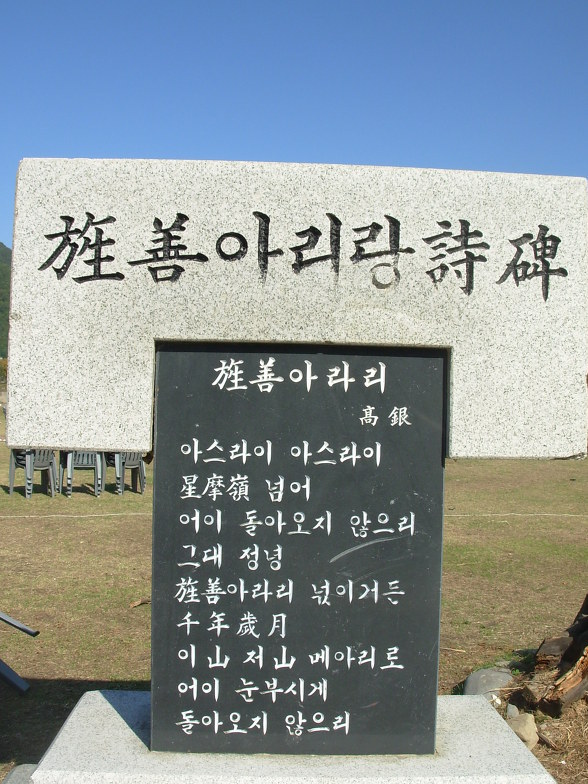 旌善아리랑詩碑
旌善아라리
高銀
아스라이 아스라이
星摩嶺 넘어
어이 돌아오지 않으리
그대 정녕
旌善아라리 넋이거든
千年歲月
이山 저山 메아리로
어이 눈부시게
돌아오지 않으리